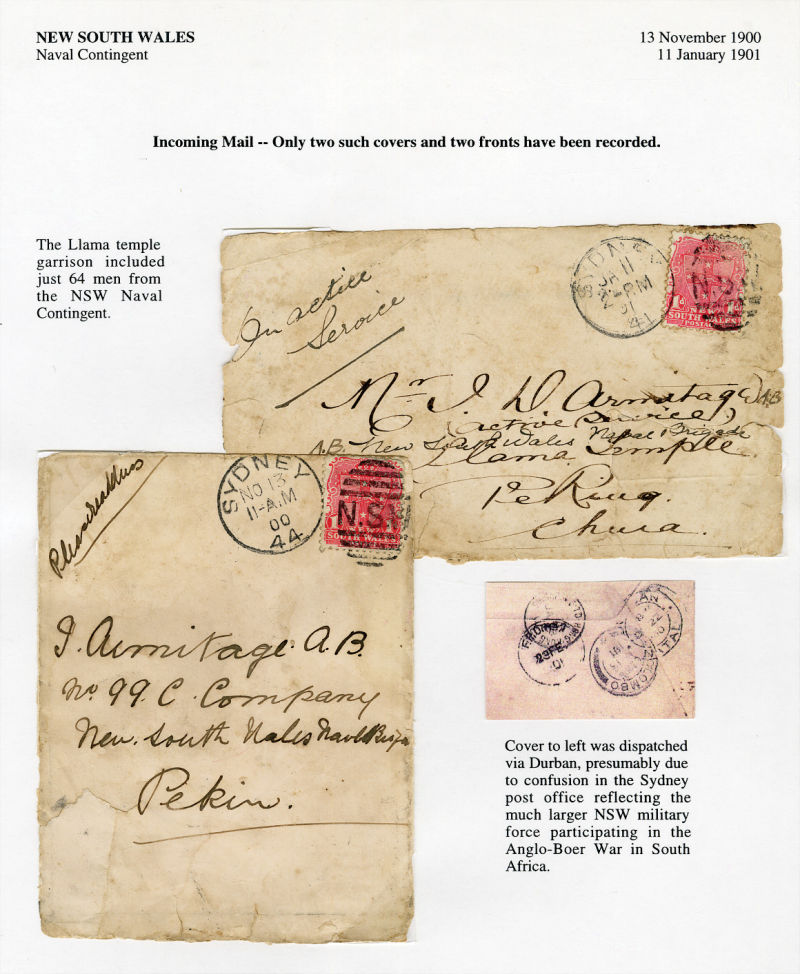 NEW SOUTH WALES
Naval Contingent
13 November 1900
11 January 1901
Incoming Mail -- Only two such covers and two fronts have been recorded.
The Llama temple
garrison included
just 64 men from
the NSW Naval
Contingent.
On active
Service
SYDNEY
JA 11
PM
01
41
N.S.
1d
SOUTH WALES
POSTAGE
Mr J. D Armitage A.B
(active Service)
A.B. New South Wales Naval Brigade
Llama Temple
Peking
China.
SYDNEY
NO 13
11-A.M
00
44
N.S.
SOUTH WALES
J. Armitage A.B.
No. 99. C. Company
New. South Wales Naval
Pekin.
23 FE
01
COLOMBO
Cover to left was dispatched
via Durban, presumably due
to confusion in the Sydney
post office reflecting the
much larger NSW military
force participating in the
Anglo-Boer War in South
Africa.